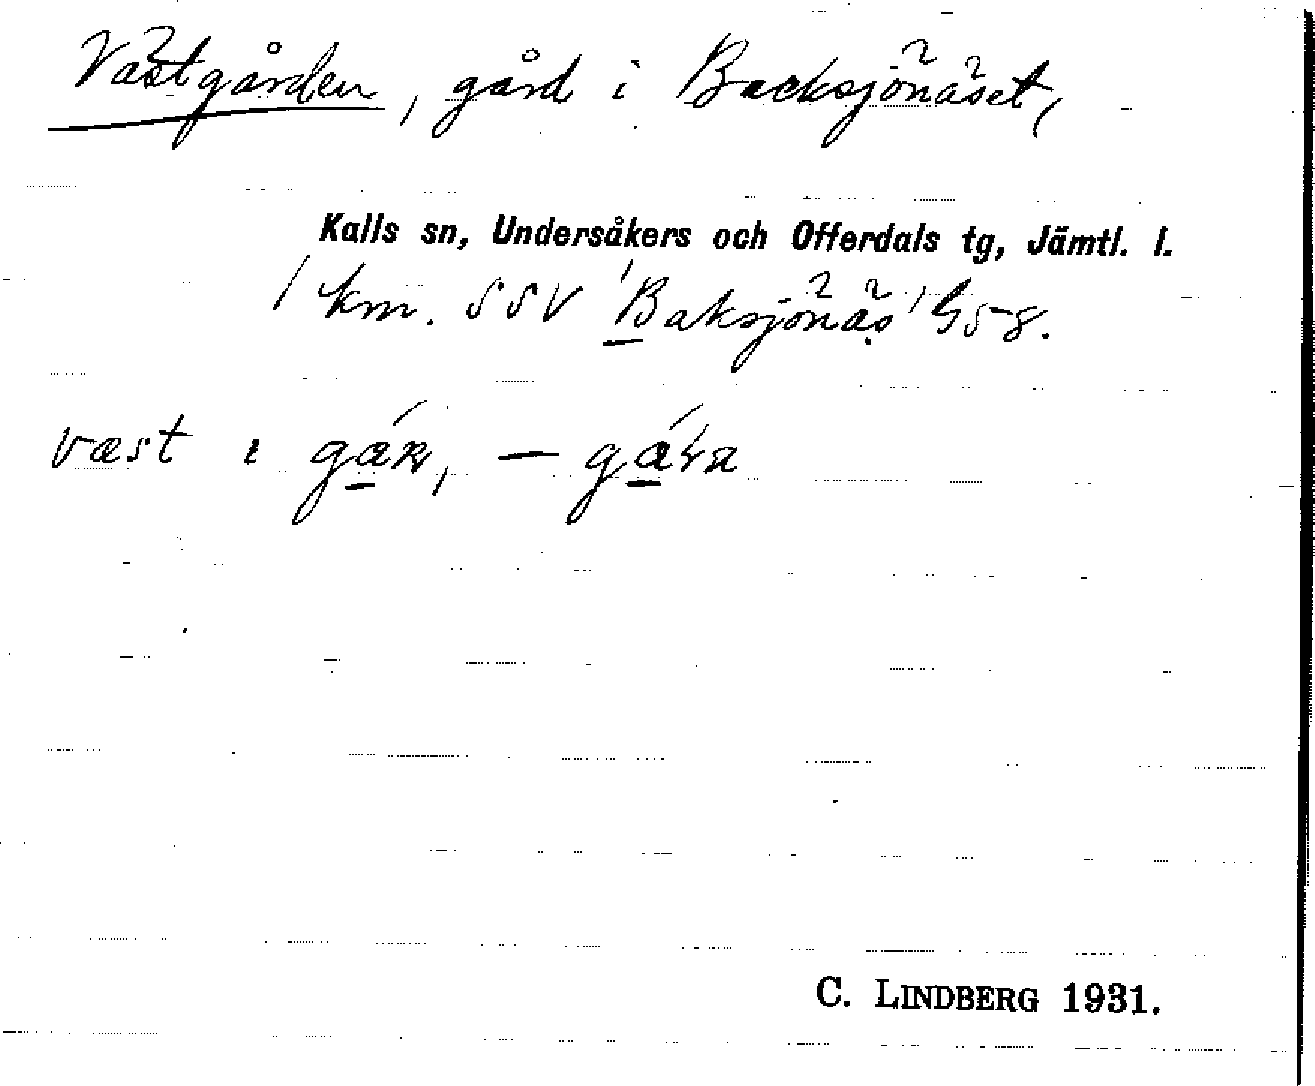 Västgården, gård i Backsjönäset,
Kalls sn, Undersåkers och Offerdals tg, Jämtl. l.
1 km. SSV 'Baksjönäs' G5-8.
væst ı gáʀ, — gáʀa
C. LINDBERG 1931.